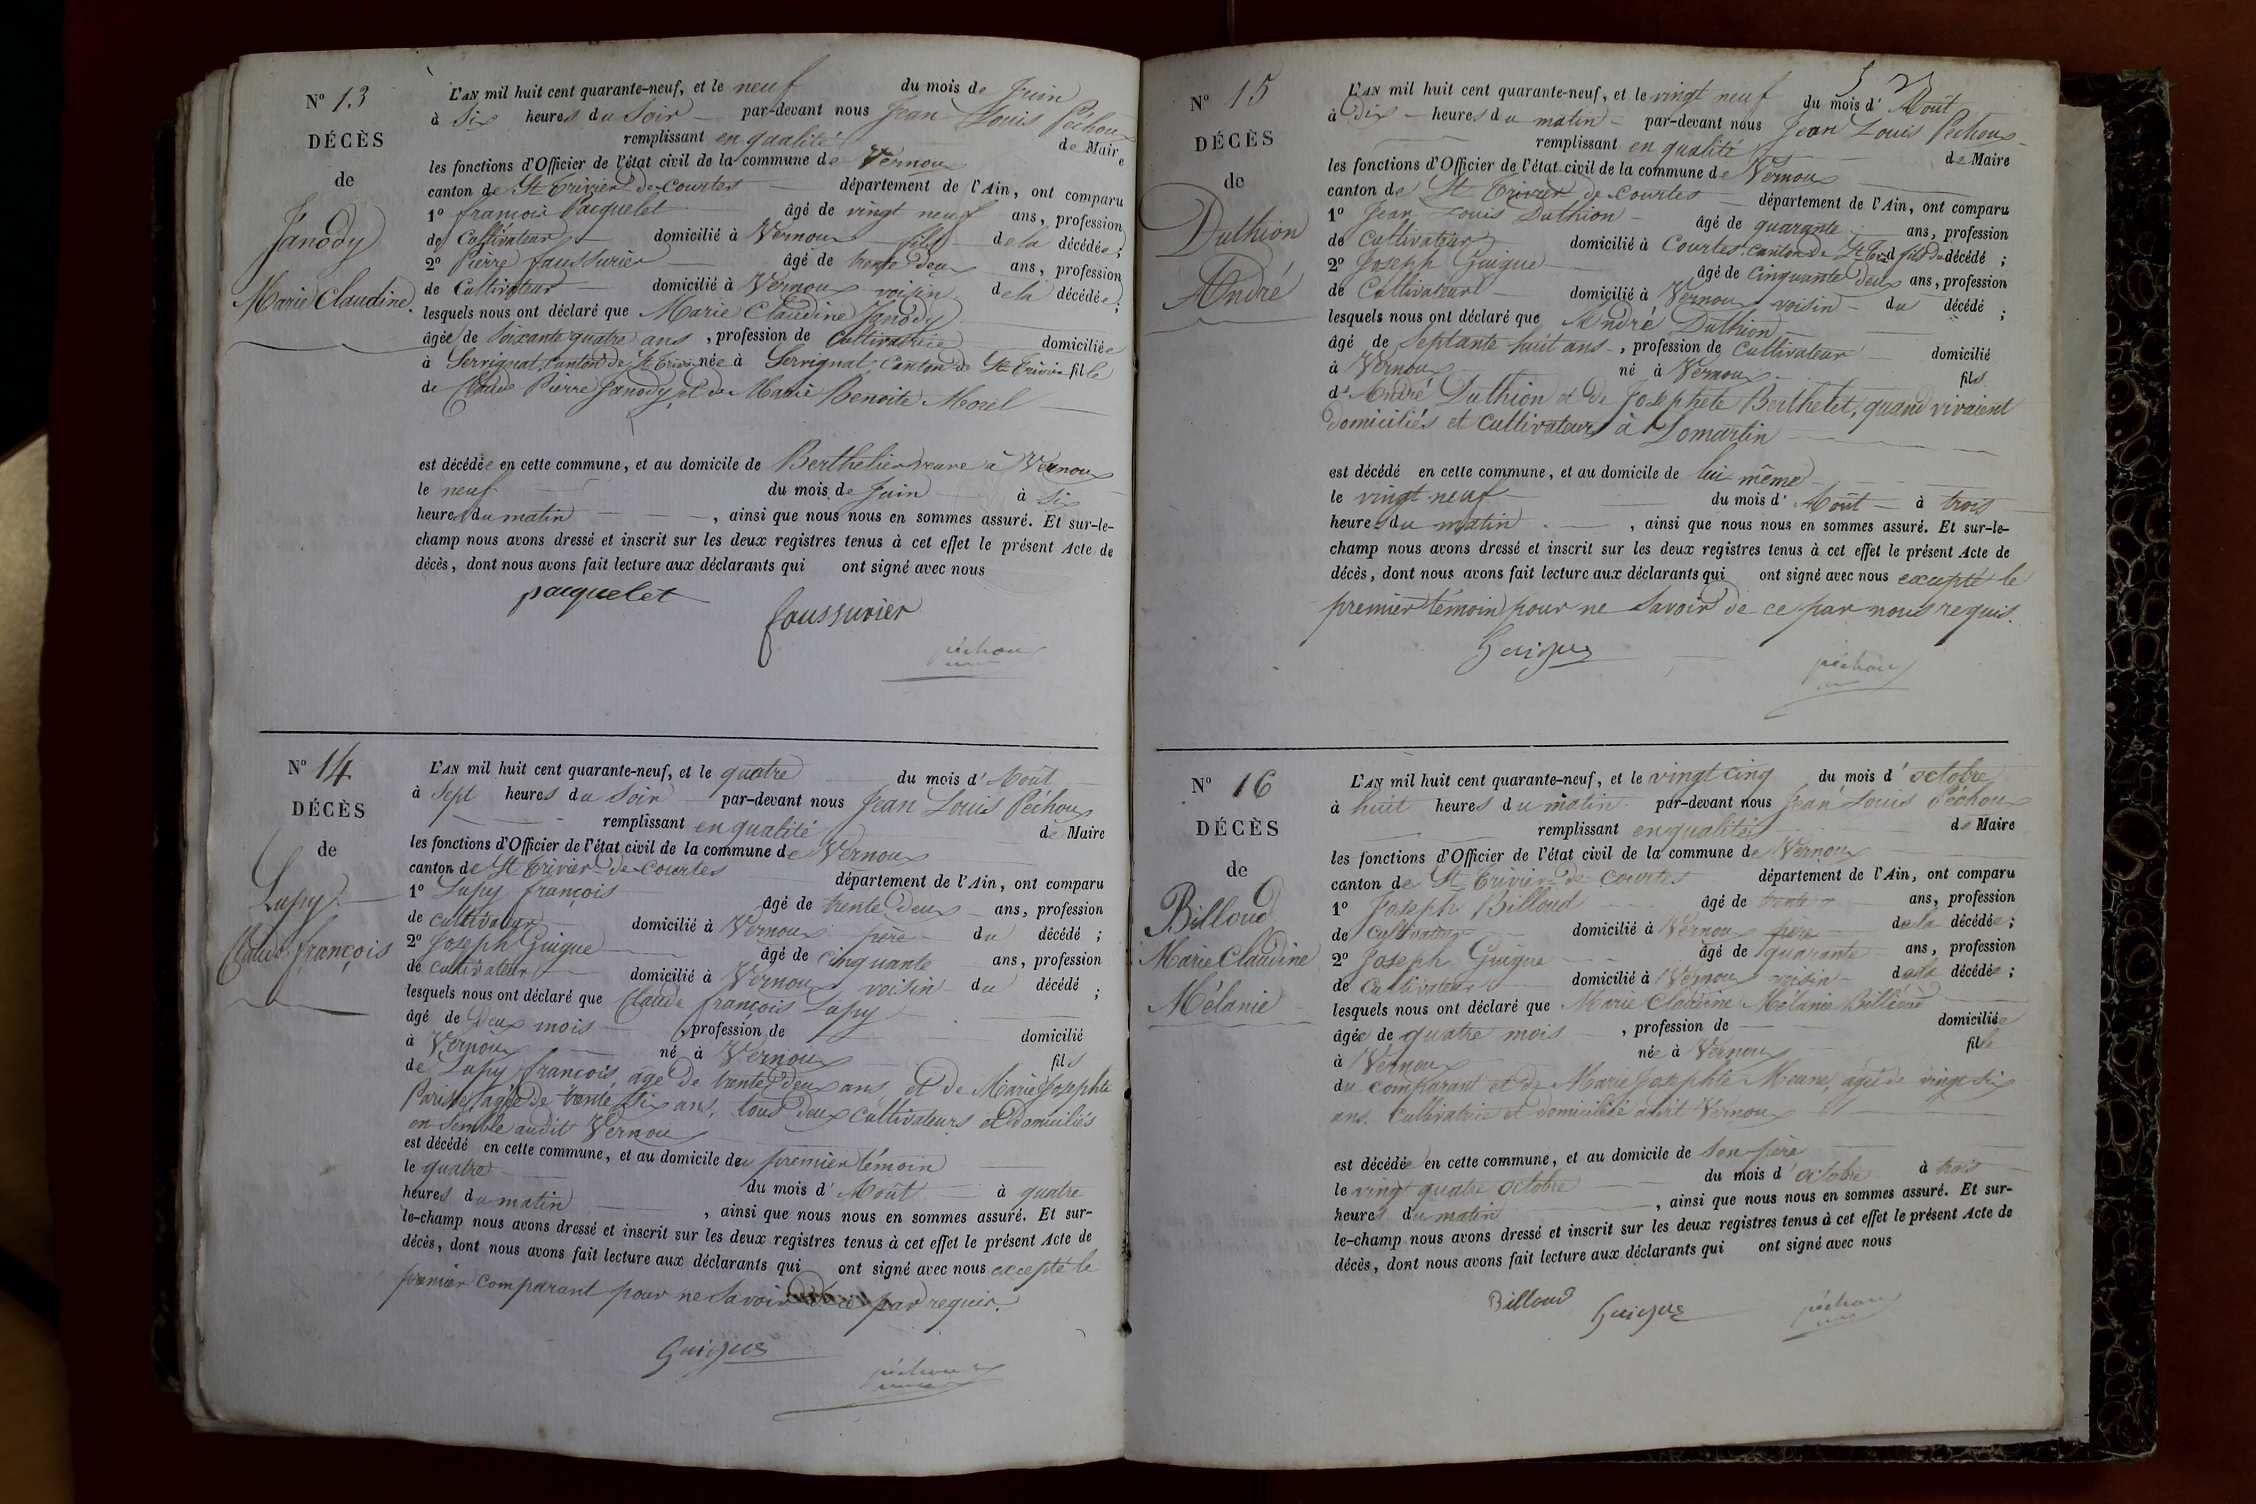 N° 13
DÉCÈS
de
Janody
Marie Claudine.
L'AN mil huit cent quarante-neuf, et le neuf du mois de Juin
à six heures du soir par-devant nous Jean Louis Péchoux
remplissant en qualité de Maire
les fonctions d'Officier de l'état civil de la commune de Vernoux
canton de St Trivier de Courtes département de l'Ain, ont comparu
1° françois Pacquelet âgé de vingt neuf ans, profession
de Cultivateur domicilié à Vernoux fils de la décédée ;
2° Pierre faussurier âgé de trente deux ans, profession
de Cultivateur domicilié à Vernoux voisin de la décédée ;
lesquels nous ont déclaré que Marie Claudine Janody
âgée de soixante quatre ans , profession de Cultivatrice domiciliée
à Servignat, Canton de St Trivier née à Servignat, Canton de St Trivier fille
de Claude Pierre Janody et de Marie Benoite Morel
est décédée en cette commune, et au domicile de Berthelier veuve à Vernoux
le neuf du mois de Juin à six
heures du matin , ainsi que nous nous en sommes assuré. Et sur-le-
champ nous avons dressé et inscrit sur les deux registres tenus à cet effet le présent Acte de
décès, dont nous avons fait lecture aux déclarants qui ont signé avec nous
pacquelet
faussurier
péchoux
N° 14
DÉCÈS
de
Lupy
Claude françois
L'AN mil huit cent quarante-neuf, et le quatre du mois d' Août
à sept heures du soir par-devant nous Jean Louis Péchoux
remplissant en qualité de Maire
les fonctions d'Officier de l'état civil de la commune de Vernoux
canton de St Trivier de Courtes département de l'Ain, ont comparu
1° Lupy françois âgé de trente deux ans, profession
de cultivateur domicilié à Vernoux père du décédé ;
2° Joseph Guigue âgé de cinquante ans, profession
de cultivateur domicilié à Vernoux voisin du décédé ;
lesquels nous ont déclaré que Claude françois Lupy
âgé de Deux mois , profession de domicilié
à Vernoux né à Vernoux fils
de Lupy françois, âgé de trente deux ans, et de Marie Josephte
Parisse, agée de trente six ans, tous deux cultivateurs et domiciliés
ensemble audit Vernoux
est décédé en cette commune, et au domicile du premier témoin
le quatre du mois d' Août à quatre
heures du matin , ainsi que nous nous en sommes assuré. Et sur-
le-champ nous avons dressé et inscrit sur les deux registres tenus à cet effet le présent Acte de
décès, dont nous avons fait lecture aux déclarants qui ont signé avec nous excepté le
premier comparant pour ne savoir de ce par requis.
Guigue
péchoux
N° 15
DÉCÈS
de
Duthion
André
L'AN mil huit cent quarante-neuf, et le vingt neuf du mois d' Août
à Dix heures du matin par-devant nous Jean Louis Péchoux
remplissant en qualité de Maire
les fonctions d'Officier de l'état civil de la commune de Vernoux
canton de St Trivier de Courtes département de l'Ain, ont comparu
1° Jean Louis Duthion âgé de quarante ans, profession
de Cultivateur domicilié à Courtes, canton de St Tri d fils du décédé ;
2° Joseph Guigue âgé de cinquante deux ans, profession
de Cultivateur domicilié à Vernoux voisin du décédé ;
lesquels nous ont déclaré que André Duthion
âgé de Septante huit ans , profession de Cultivateur domicilié
à Vernoux né à Vernoux fils
d' André Duthion et de Josephete Berthelet, quand vivaient
domiciliés et cultivateurs à Lomartin
est décédé en cette commune, et au domicile de lui même
le vingt neuf du mois d' Août à trois
heures du matin , ainsi que nous nous en sommes assuré. Et sur-le-
champ nous avons dressé et inscrit sur les deux registres tenus à cet effet le présent Acte de
décès, dont nous avons fait lecture aux déclarants qui ont signé avec nous excepté le
premier témoin pour ne savoir de ce par nous requis.
Guigue
péchoux
N° 16
DÉCÈS
de
Billoud
Marie Claudine
Mélanie
L'AN mil huit cent quarante-neuf, et le vingt cinq du mois d' octobre
à huit heures du matin par-devant nous Jean Louis Péchoux
remplissant en qualité de Maire
les fonctions d'Officier de l'état civil de la commune de Vernoux
canton de St Trivier de Courtes département de l'Ain, ont comparu
1° Joseph Billoud âgé de trente ans, profession
de cultivateur domicilié à Vernoux père de la décédée ;
2° Joseph Guigue âgé de quarante ans, profession
de Cultivateur domicilié à Vernoux voisin de la décédée ;
lesquels nous ont déclaré que Marie Claudine Mélanie Billoud
âgée de quatre mois , profession de domiciliée
à Vernoux née à Vernoux fille
du comparant et de Marie Josephte Meune, agée de vingt six
ans. Cultivatrice et domiciliée audit Vernoux
est décédée en cette commune, et au domicile de son père
le vingt quatre octobre du mois d' octobre à trois
heures du matin , ainsi que nous nous en sommes assuré. Et sur-
le-champ nous avons dressé et inscrit sur les deux registres tenus à cet effet le présent Acte de
décès, dont nous avons fait lecture aux déclarants qui ont signé avec nous
Billoud
Guigue
péchoux